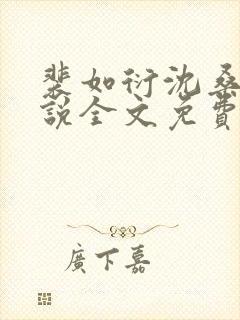 裴如衍沈桑
說全文免費
廣下嘉